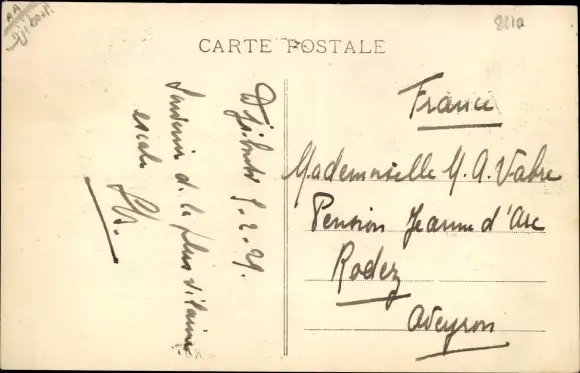 Djibouti
CARTE POSTALE
Djibouti 9.2.29.
Souvenir de la plus vilaine
escale
France
Mademoiselle M. A. Vabre
Pension Jeanne d'Arc
Rodez
Aveyron